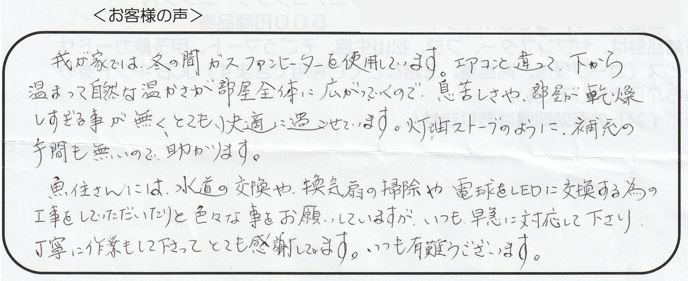 ＜お客様の声＞
我が家では、冬の間ガスファンヒーターを使用しています。エアコンと違って、下から
温まって自然な温かさが部屋全体に広がっていくので、息苦しさや、部屋が乾燥
しすぎる事が無く、とても快適に過ごせています。灯油ストーブのように、補充の
手間も無いので、助かります。
魚住さんには、水道の交換や、換気扇の掃除や電球をLEDに交換する為の
工事をしていただいたりと色々な事をお願いしていますが、いつも早急に対応して下さり、
丁寧に作業もして下さってとても感謝しています。いつも有難うございます。